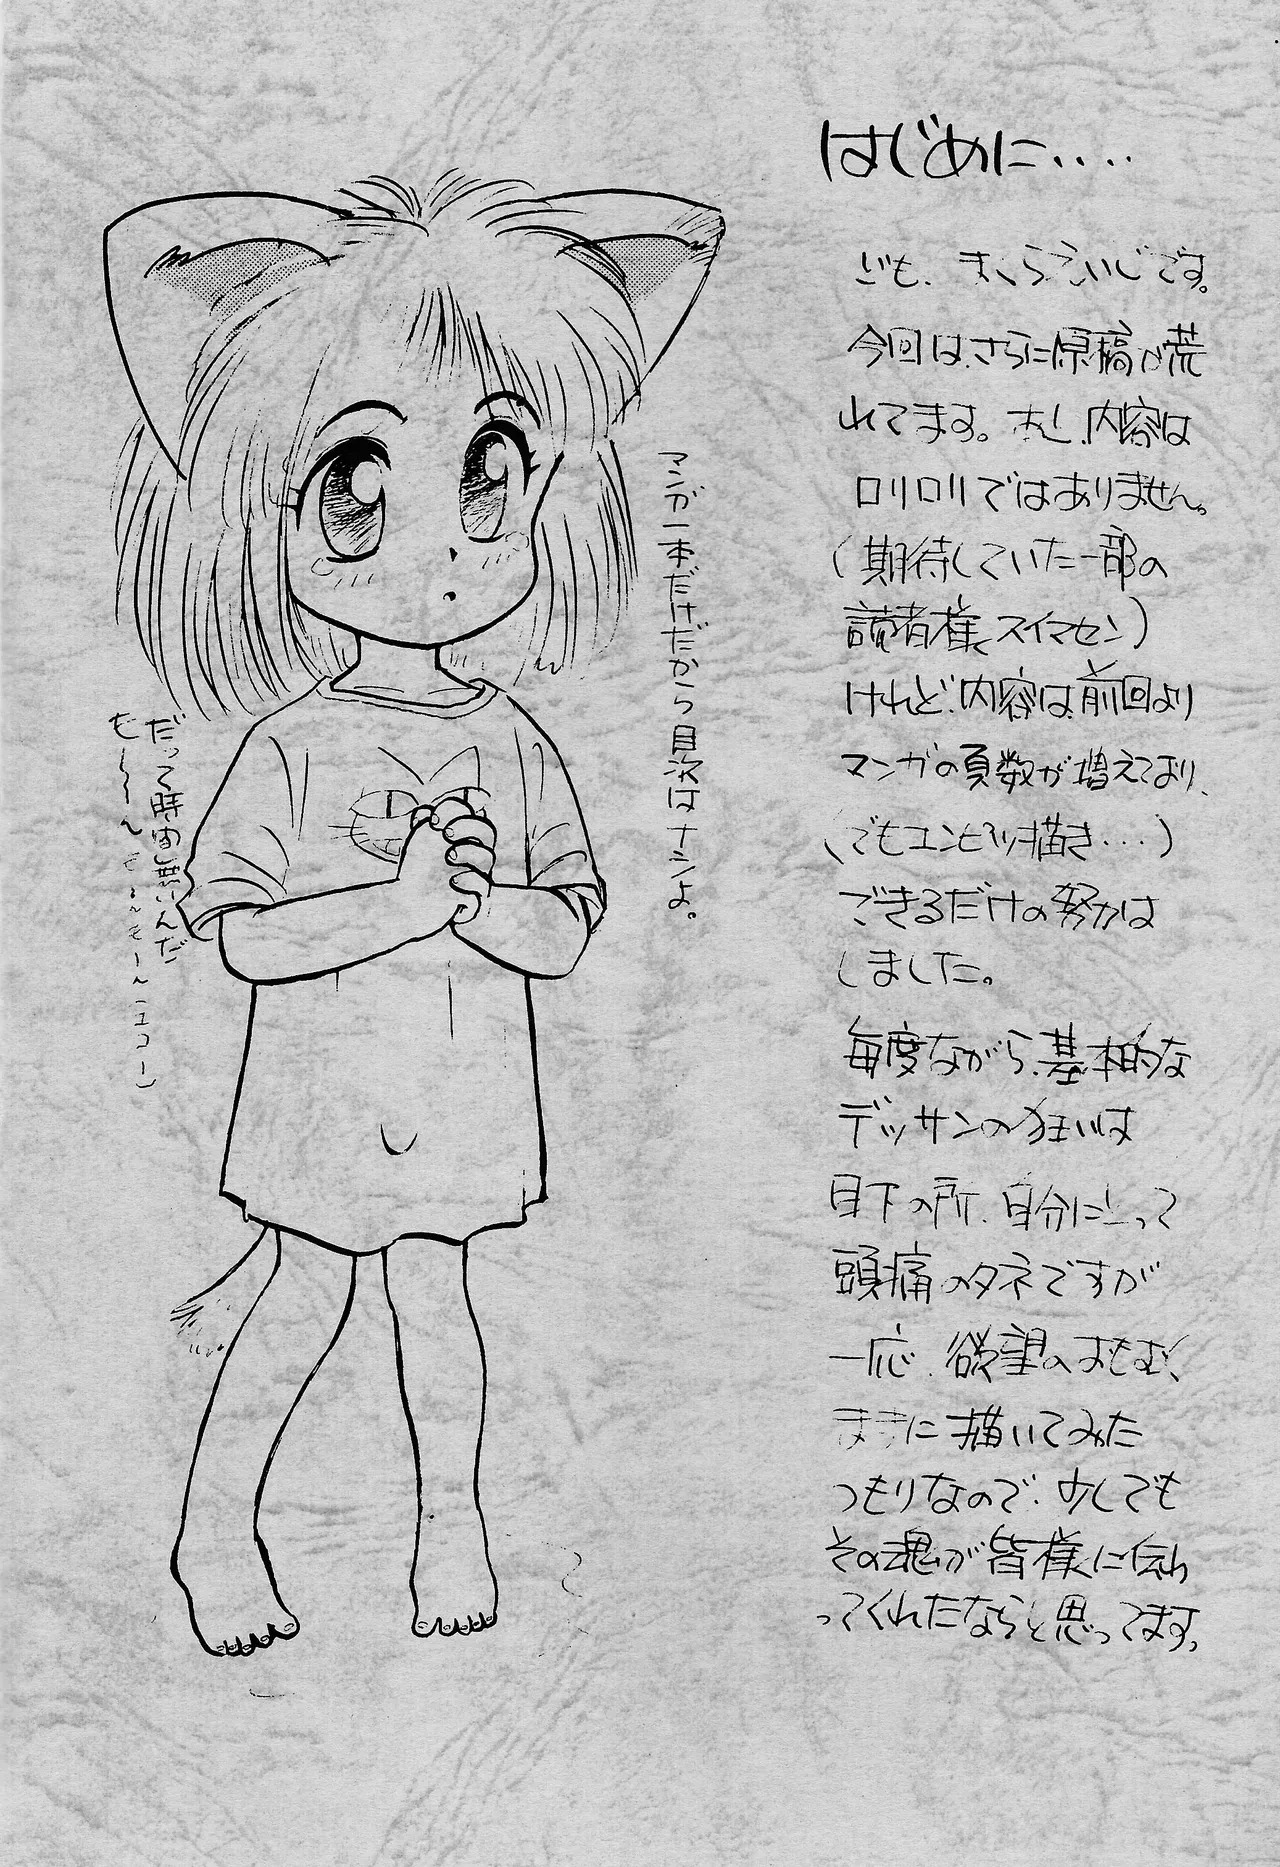 はじめに‥‥
ども、まくらえいじです。
今回は、さらに原稿が荒
れてます。あと、内容は
ロリロリではありません。
(期待していた一部の
読者様、スイマセン)
けれど、内容は、前回より
マンガの頁数が増えており、
(でもエンピツ描き‥‥)
できるだけの努力は
しました。
毎度ながら、基本的な
デッサンの狂いは
目下の所、自分にとって
頭痛のタネですが
一応、欲望のおもむく
ままに描いてみた
つもりなので、少しでも
その魂が皆様に伝わ
ってくれたならと思ってます。
マンガ一本だけだから目次はナシよ。
だって時間無いんだ
も〜〜〜ん も〜ん も〜ん (エコー)